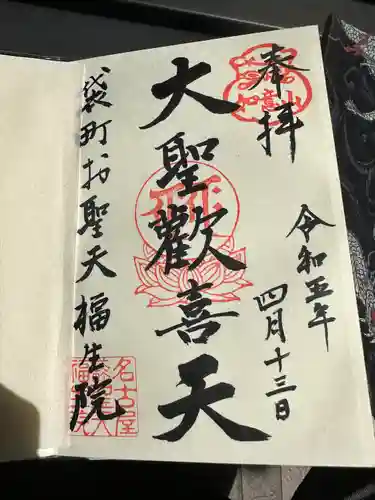 奉拝
如意山
令和五年
四月十三日
大聖歡喜天
袋町お聖天福生院
名古屋